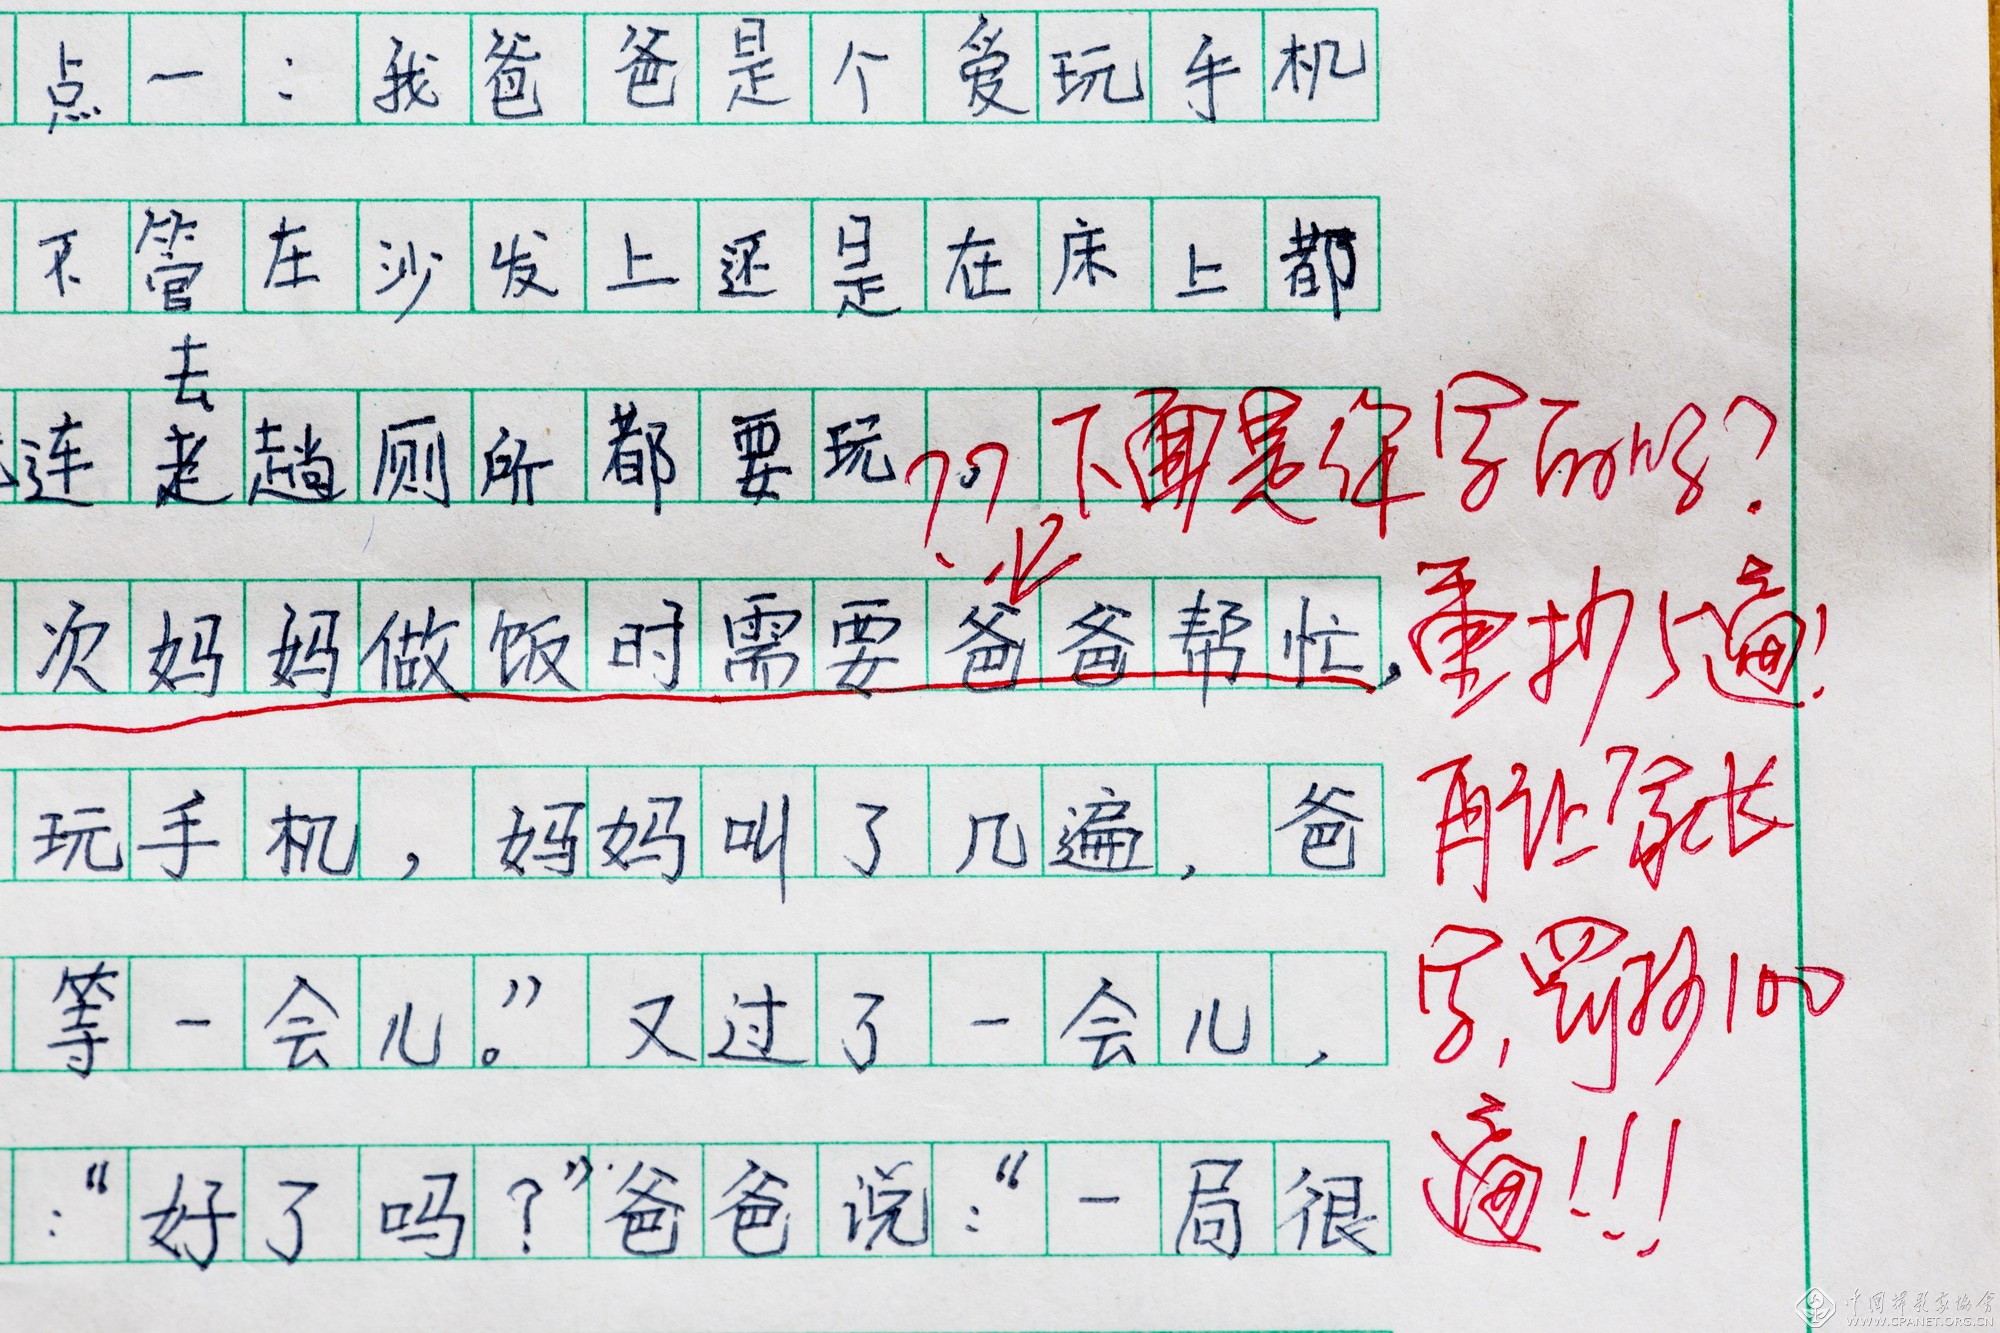 点一：我爸爸是个爱玩手机
不管在沙发上还是在床上都
去
连老趟厕所都要玩。
?? 下面是你写的吗？
次妈妈做饭时需要爸爸帮忙，
重抄5遍！
玩手机，妈妈叫了几遍，爸
再让家长
等一会儿。”又过了一会儿，
字，罚抄100
遍！！！
：“好了吗？”爸爸说：“一局很
中国摄影家协会
WWW.CPANET.ORG.CN